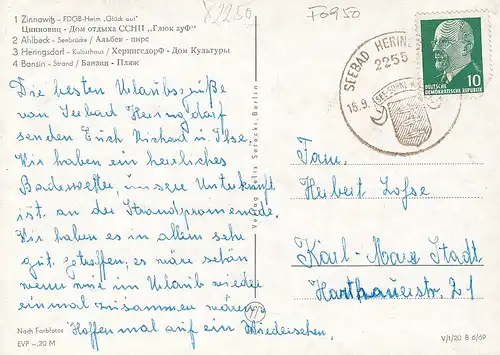 1 Zinnowitz - FDGB-Heim „Glück auf"
Цинновиц - Дом отдыха ССНП „Глюк ауф"
2 Ahlbeck - Seebrücke / Альбек - пирс
3 Heringsdorf - Kulturhaus / ХерингсдорФ - Дом Культуры
4 Bansin - Strand / Банзин - Пляж
Die besten Urlaubsgrüße
von Seebad Heringsdorf
senden Euch Richard u Ilse.
Wir haben ein herrliches
Badewetter, unsere Unterkunft
ist an der Strandpromenade.
Wir haben es in allem sehr
gut getroffen, es wäre schön
wenn wir im Urlaub wieder
einmal zusammen wären
Hoffen mal auf ein Wiedersehen.
Nach Farbfotos
EVP -.20 M
Verlag Felix Setecki, Berlin
F6950
SEEBAD HERINGS
2255
18.9.
DEUTSCHE
DEMOKRATISCHE REPUBLIK
10
Fam.
Herbert Lohse
Karl-Marx Stadt
Harthauerstr. 21
V/1/20 B 6/69